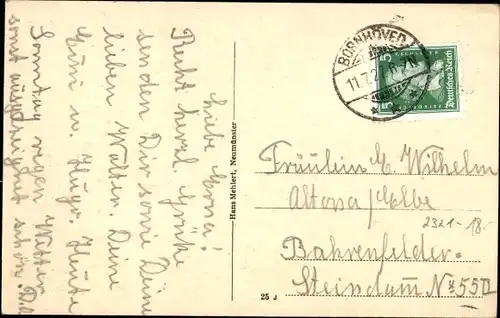 Liebe Erna!
Recht herzl. Grüße
senden Dir sowie Deine
lieben Walter. Deine
u. Hugo. Heute
Sonntag regen Wetter
sonst schön.
Hans Mehlert, Neumünster
25 J
BORNHÖVED
11.7.2
5
5
Deutsches Reich
Fräulein E. Wilhelm
Altona/Elbe
2321-18.
Bahrenfelder-
Steindamm No 55 II